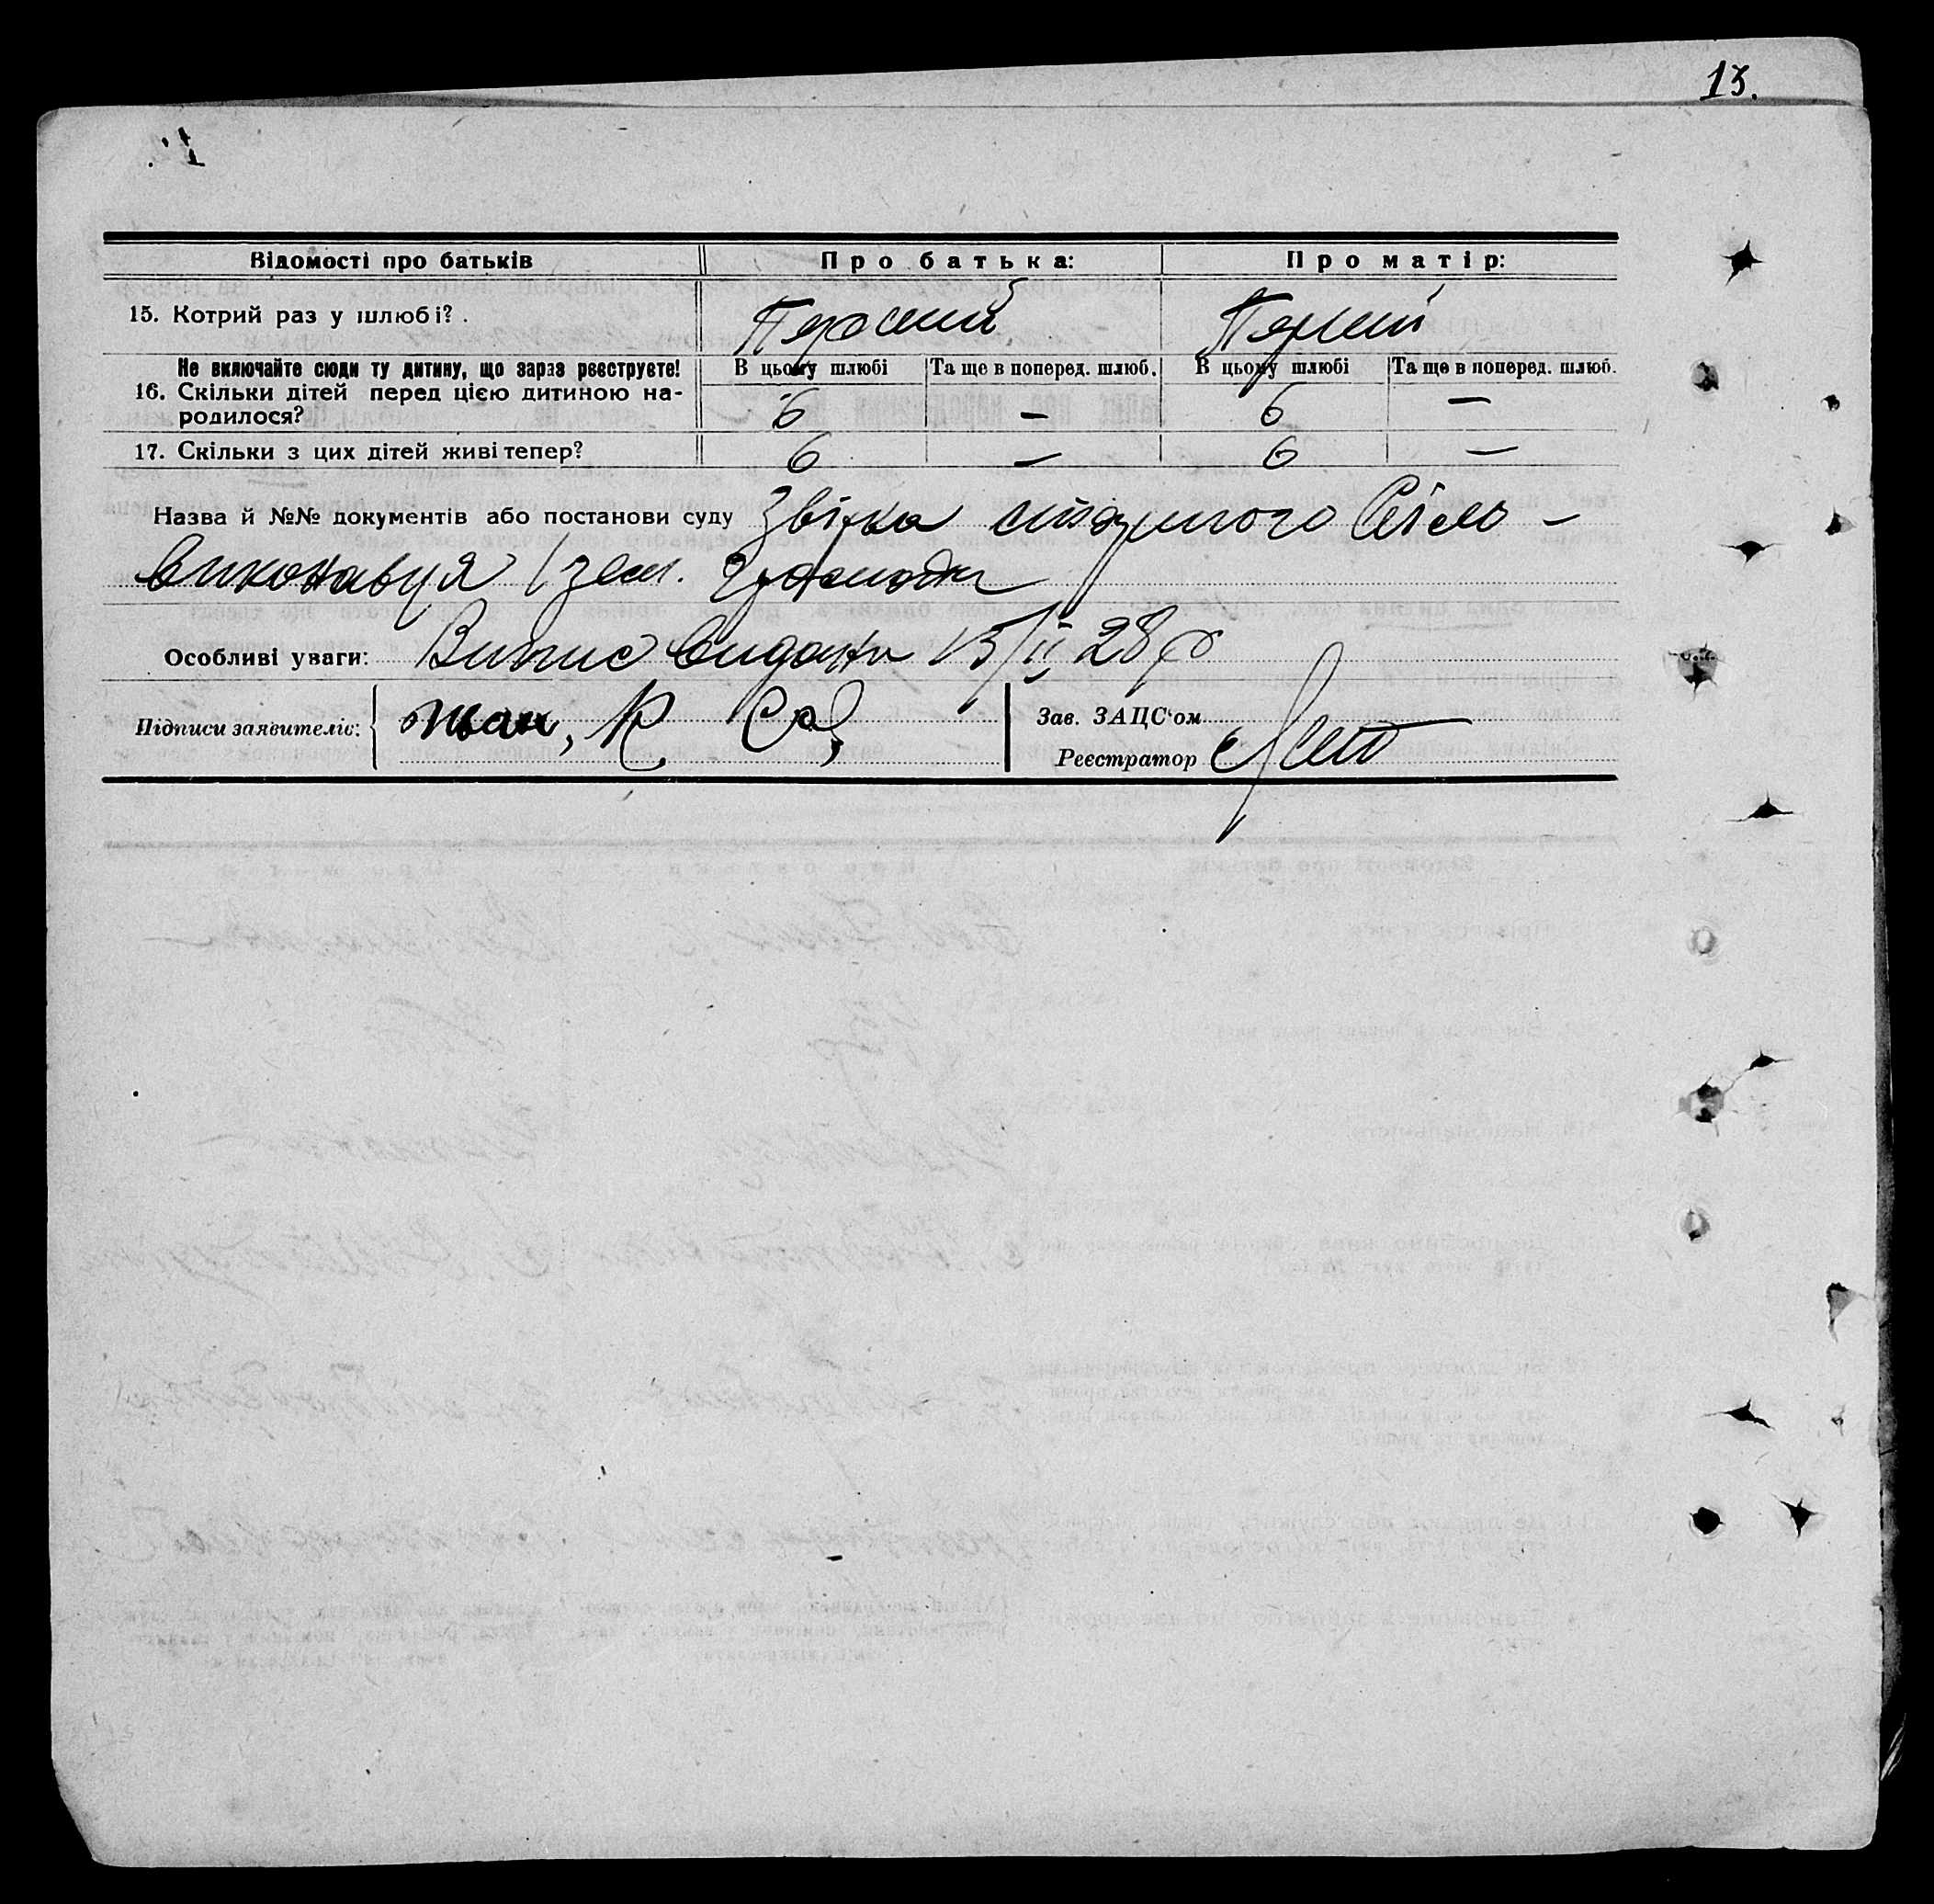 13.
Відомості про батьків Про батька: Про матір:
15. Котрий раз у шлюбі? Перший Перший
Не включайте сюди ту дитину, що зараз реєструєте! В цьому шлюбі Та ще в поперед. шлюб. В цьому шлюбі Та ще в поперед. шлюб.
16. Скільки дітей перед цією дитиною на-
родилося? 6 — 6 —
17. Скільки з цих дітей живі тепер? 6 — 6 —
Назва й №№ документів або постанови суду Звістка старшого Сіль-
виконавця / зем. Громади
Особливі уваги: Випис видано 13/II 28 р
Підписи заявителів: К Зав. ЗАЦС'ом
Реєстратор